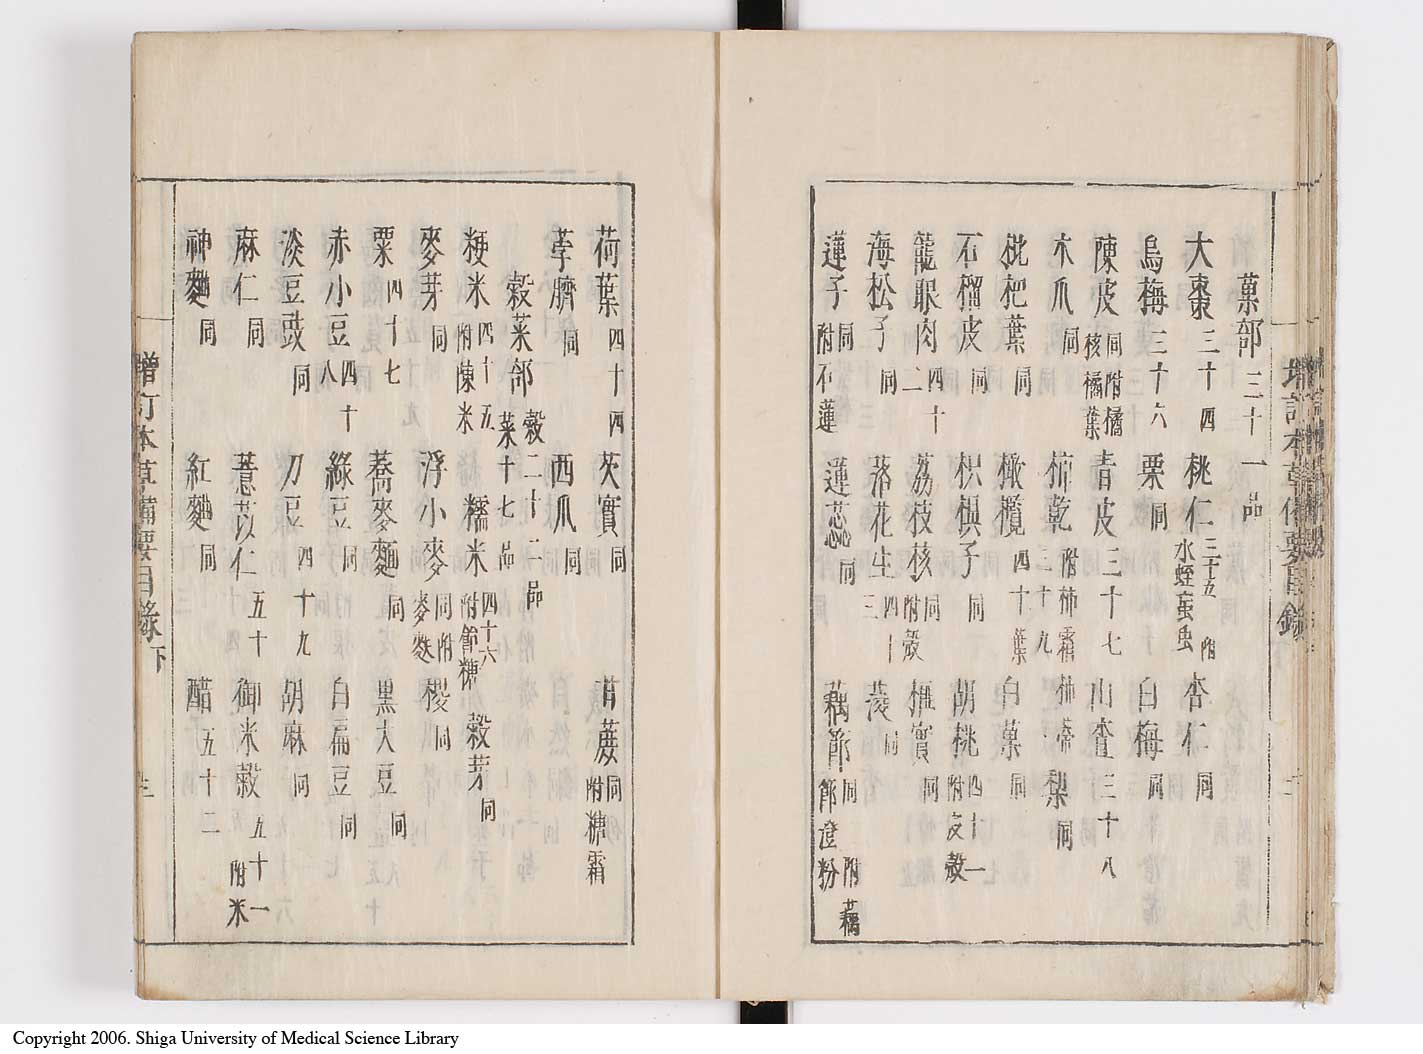 菓部三十一品
大棗三十四 桃仁三十五 附水蛭䖟虫 杏仁同
烏梅三十六 栗同 白梅同
陳皮同附橘核橘葉 青皮三十七 山査三十八
木瓜同 柿乾三十九 附柿霜柿蒂 梨同
枇杷葉同 橄欖四十 白菓同
石榴皮同 枳椇子同 胡桃四十一 附皮殼
龍眼肉四十二 荔枝核同附殼 榧實同
海松子同 落花生四十三 菱同
蓮子同附石蓮 蓮蕊同 藕節同 附藕節澄粉
荷葉四十四 芡實同 甘蔗同附糖霜
荸臍同 西瓜同
穀菜部 穀二十二品 菜十七品
粳米四十五 附陳米 糯米四十六 附節糠 穀芽同
麥芽同 浮小麥同附麥麩 稷同
粟四十七 蕎麥麵同 黒大豆同
赤小豆四十八 綠豆同 白扁豆同
淡豆豉同 刀豆四十九 胡麻同
麻仁同 薏苡仁五十 御米殼五十一 附米
神麴同 紅麴同 醋五十二
增訂本草備要目錄下
Copyright 2006. Shiga University of Medical Science Library